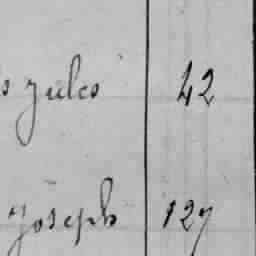 s Jules 42
Joseph 127